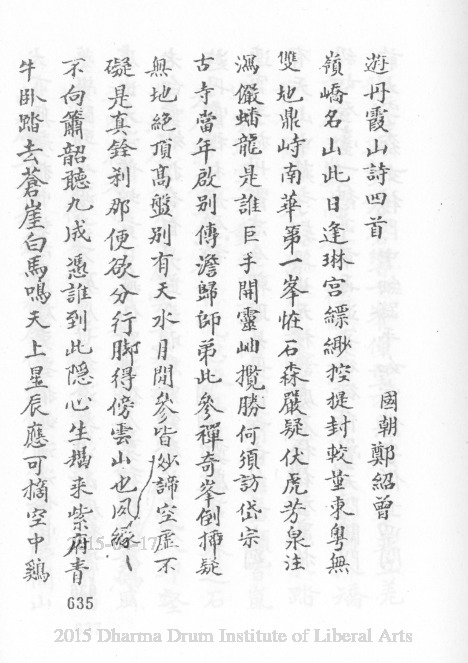 遊丹霞山詩四首
國朝鄭紹曾
嶺嶠名山此日逢琳宮縹緲控提封較量東粤無
雙地鼎峙南華第一峯恠石森嚴疑伏虎芳泉注
瀉儼蟠龍是誰巨手開靈岫攬勝何須訪岱宗
古寺當年啟别傳澹歸師弟此參禪奇峯倒插疑
無地絶頂髙盤别有天水月閒參皆妙諦空虛不
礙是真銓刹那便欲分行脚得傍雲山也夙緣
不向簫韶聽九成憑誰到此隱心生鶴来紫府青
牛臥踏去蒼崖白馬鳴天上星辰應可摘空中鷄
635
2015 Dharma Drum Institute of Liberal Arts